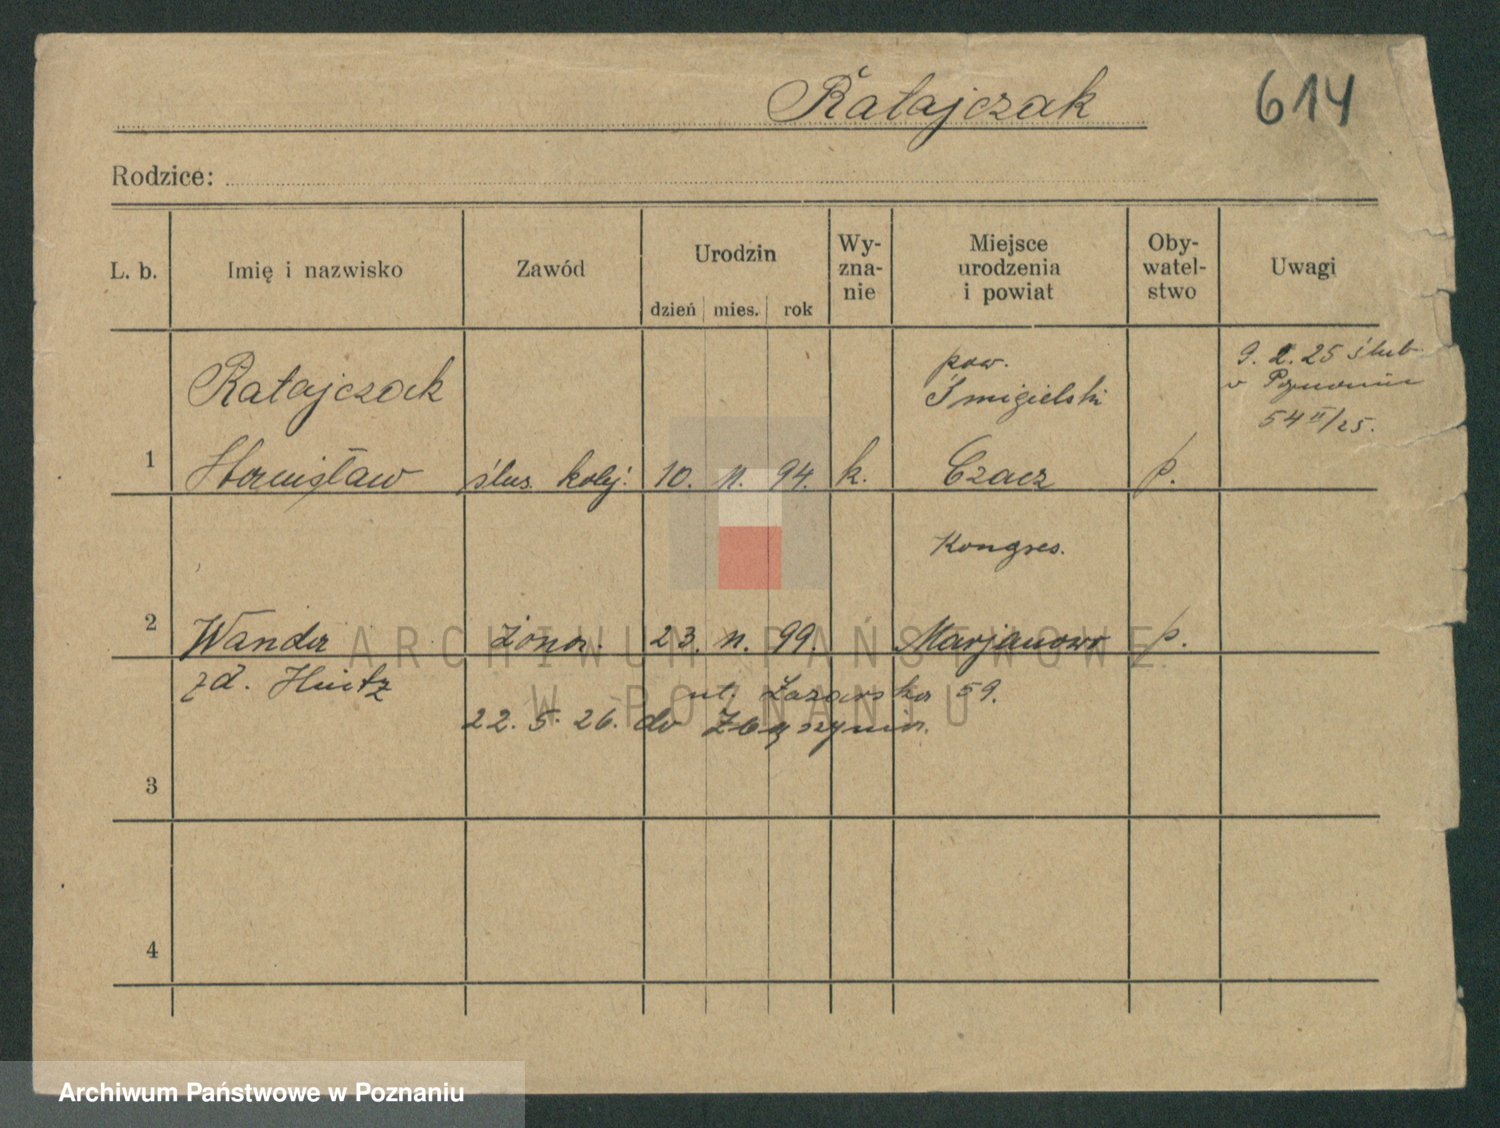 Ratajczak
614
Rodzice:
L. b.
Imię i nazwisko
Zawód
Urodzin
dzień mies. rok
Wy-
zna-
nie
Miejsce
urodzenia
i powiat
Oby-
watel-
stwo
Uwagi
Ratajczak
pow.
Śmigielski
9. 2. 25 ślub
w Poznaniu
54 II/25.
1 Stanisław ślus. kolej. 10. 11. 94. k. Czacz p.
Kongres.
2 Wanda żona. 23. 11. 99. Marjanowo p.
zd. Hintz ul. Łazarska 59.
22. 5. 26. do Zbąszynia.
3
4
ARCHIWUM PAŃSTWOWE
W POZNANIU
Archiwum Państwowe w Poznaniu